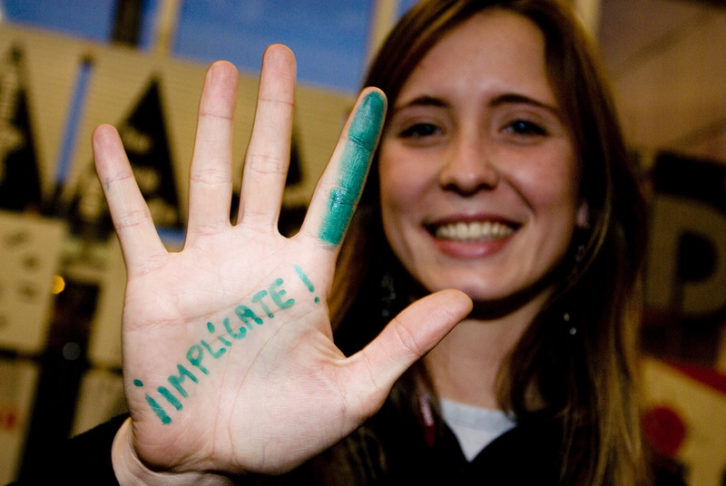 ¡IMPLÍCATE!